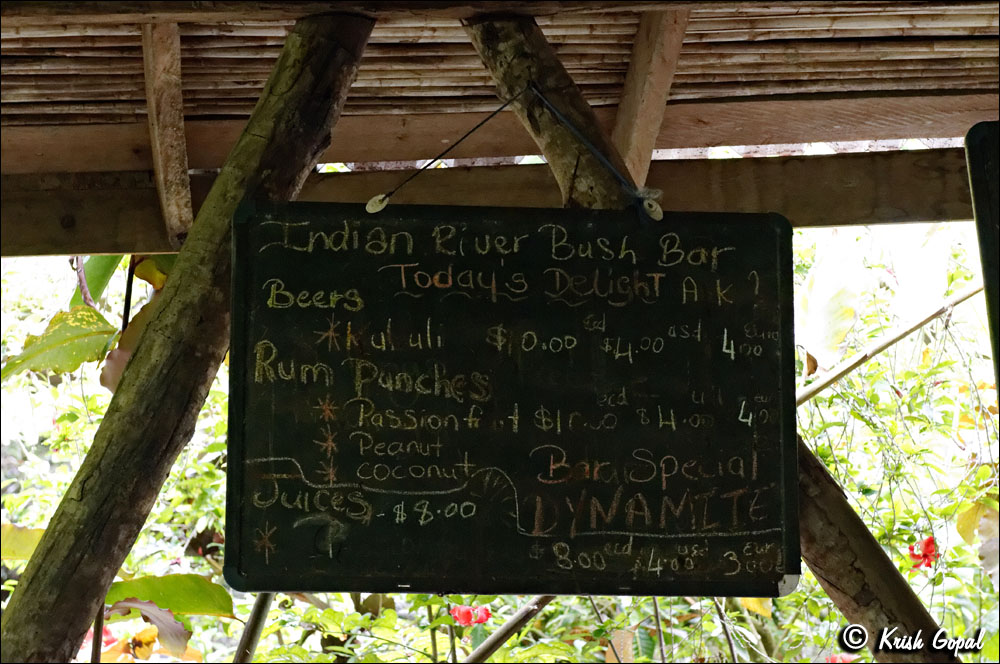 Indian River Bush Bar
Today's Delight AK?
Beers
* Kululi $10.00 ecd $4.00 usd 4.00 Euro
Rum Punches
* Passionfruit $10.00 ecd $4.00
* Peanut
* coconut
Bar Special
DYNAMITE
Juices - $8.00
*
$8.00 ecd $4.00 usd 3.00 Eur
© Krish Gopal